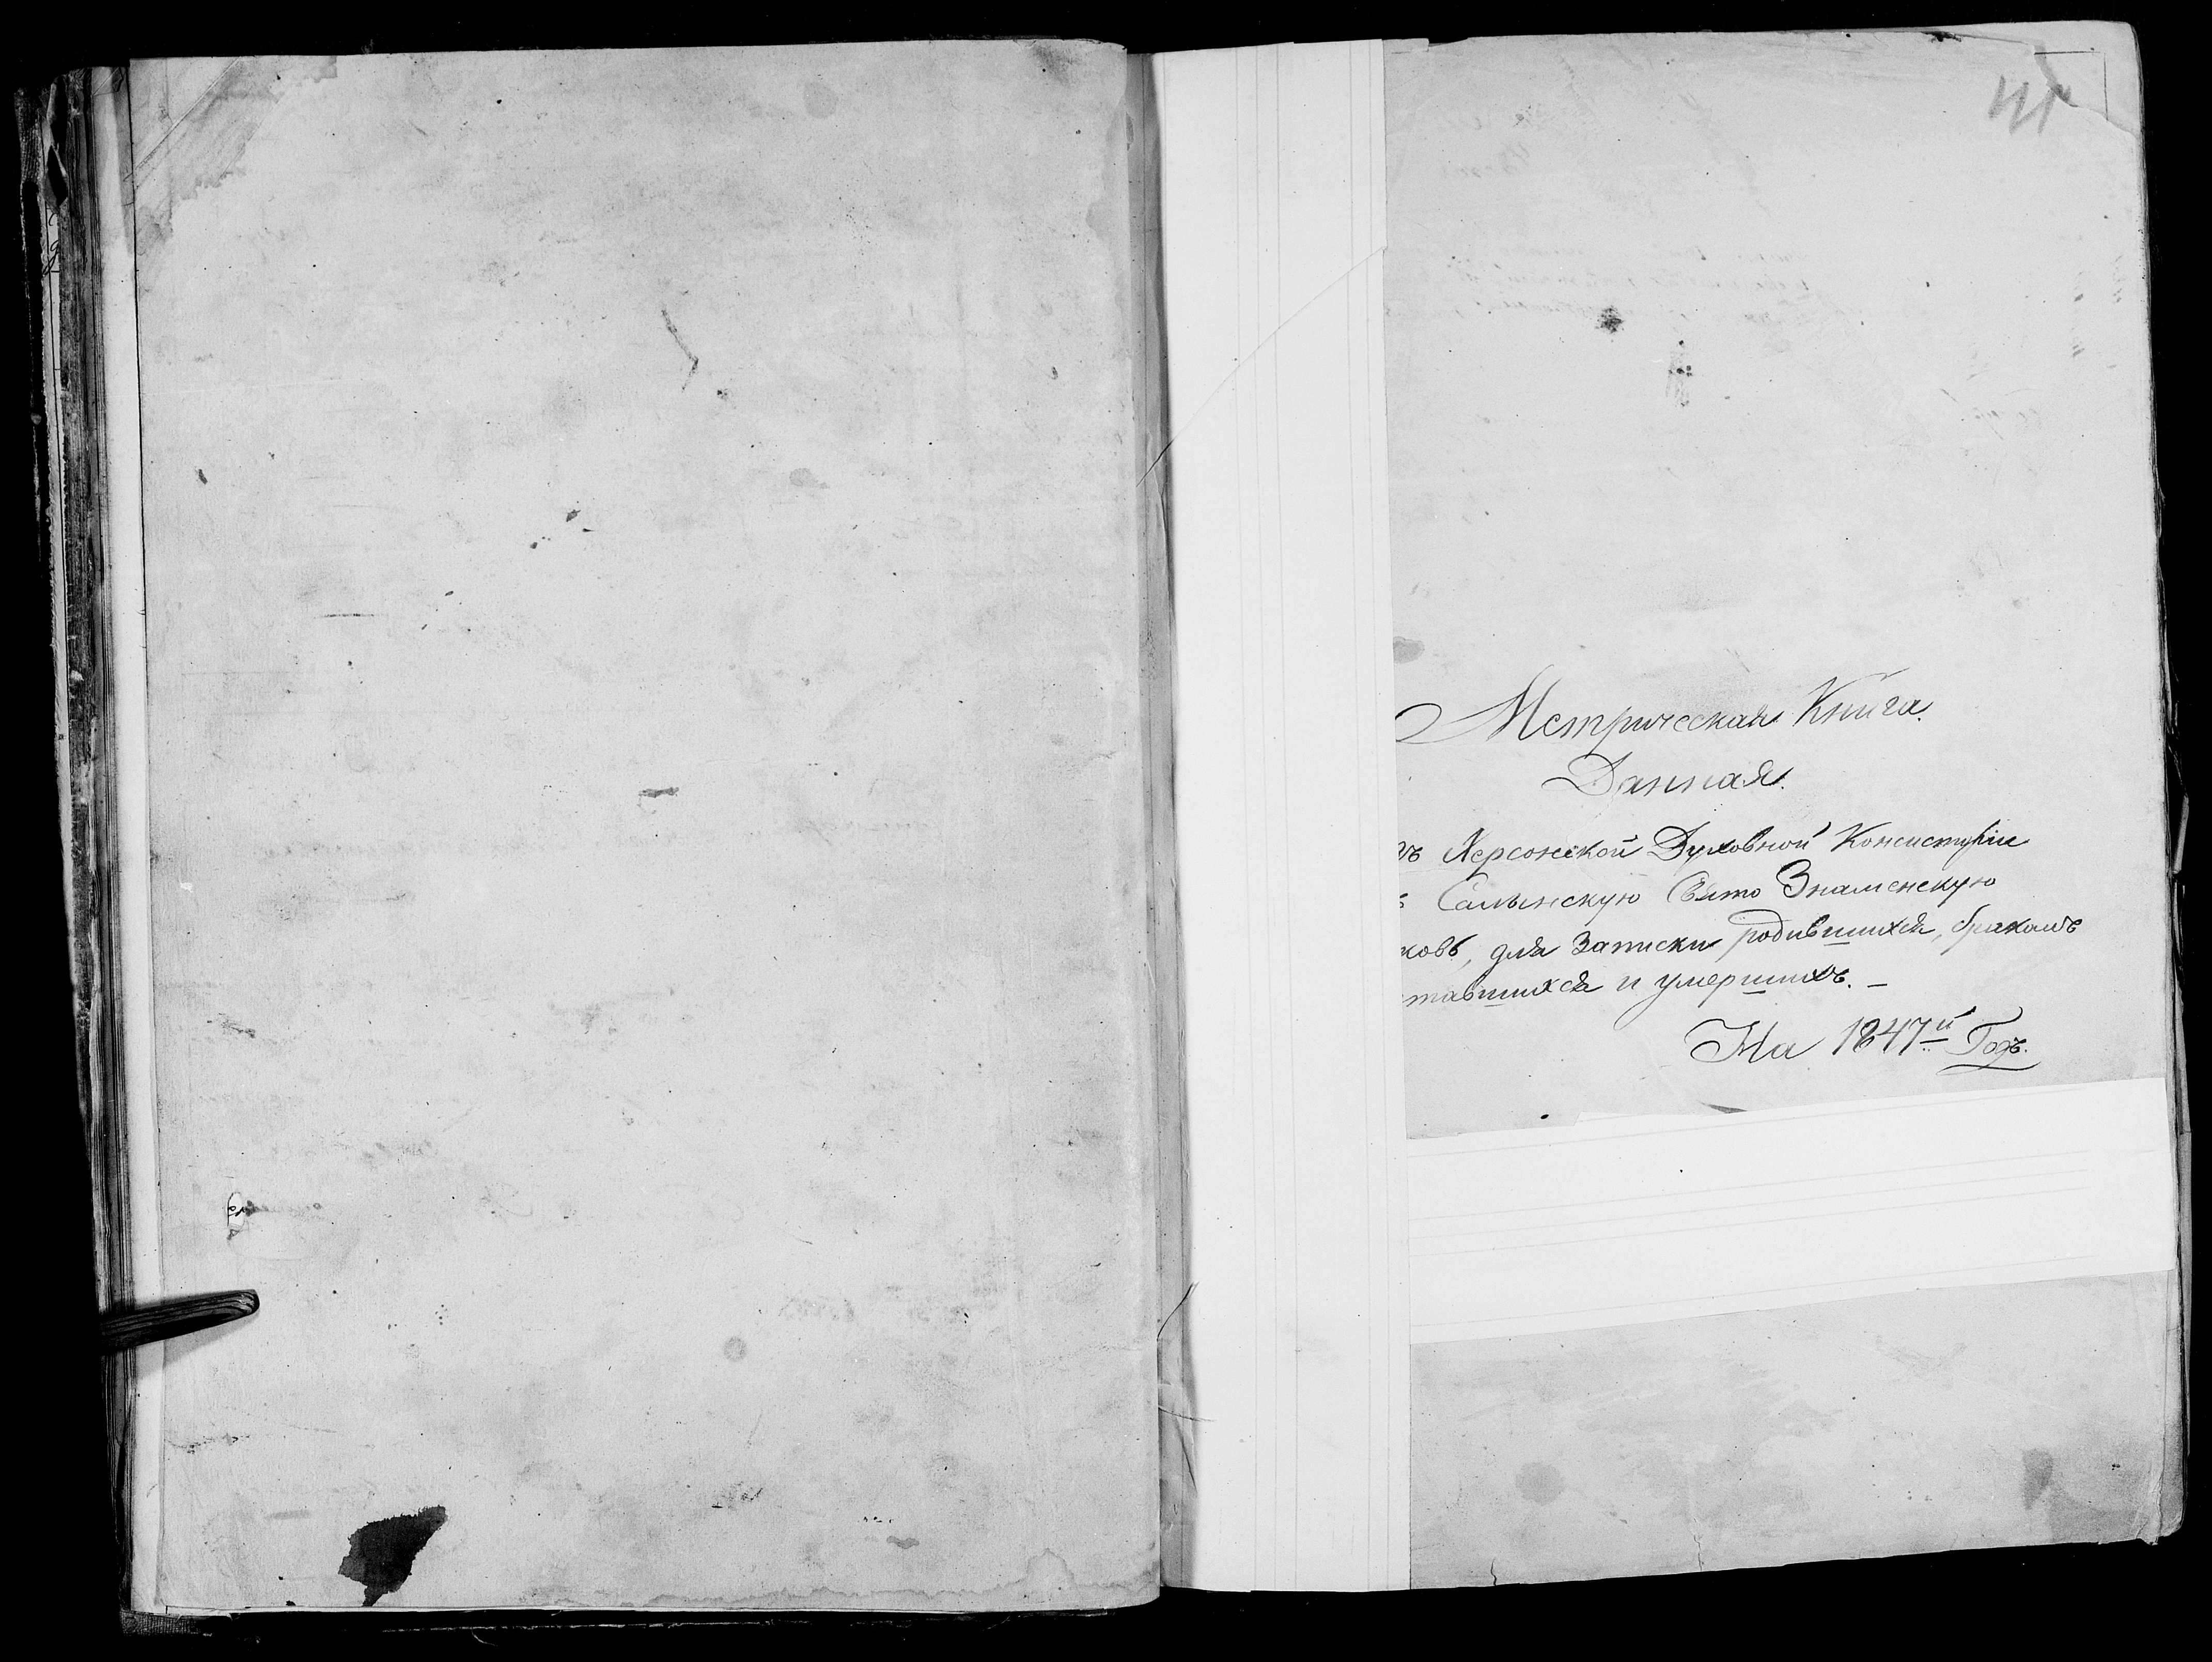 Метрическая Книга.
Данная.
Херсонской Духовной Консисторіи
Свято Знаменскую
ковь, для Записки родившихся, бракомъ
тавшихся и умершихъ. –
На 1847й Годъ.